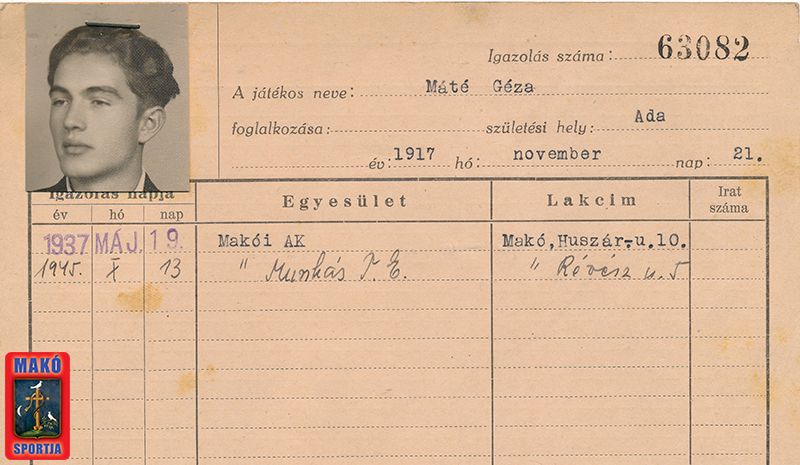 Igazolás száma: 63082
A játékos neve: Máté Géza
foglalkozása: születési hely: Ada
év: 1917 hó: november nap: 21.
Igazolás napja
Egyesület Lakcim Irat száma
év hó nap
1937 MÁJ. 19. Makói AK Makó, Huszár-u.10.
1945. X 13 " Munkás T. E. " Révész u. 5
MAKÓ
SPORTJA